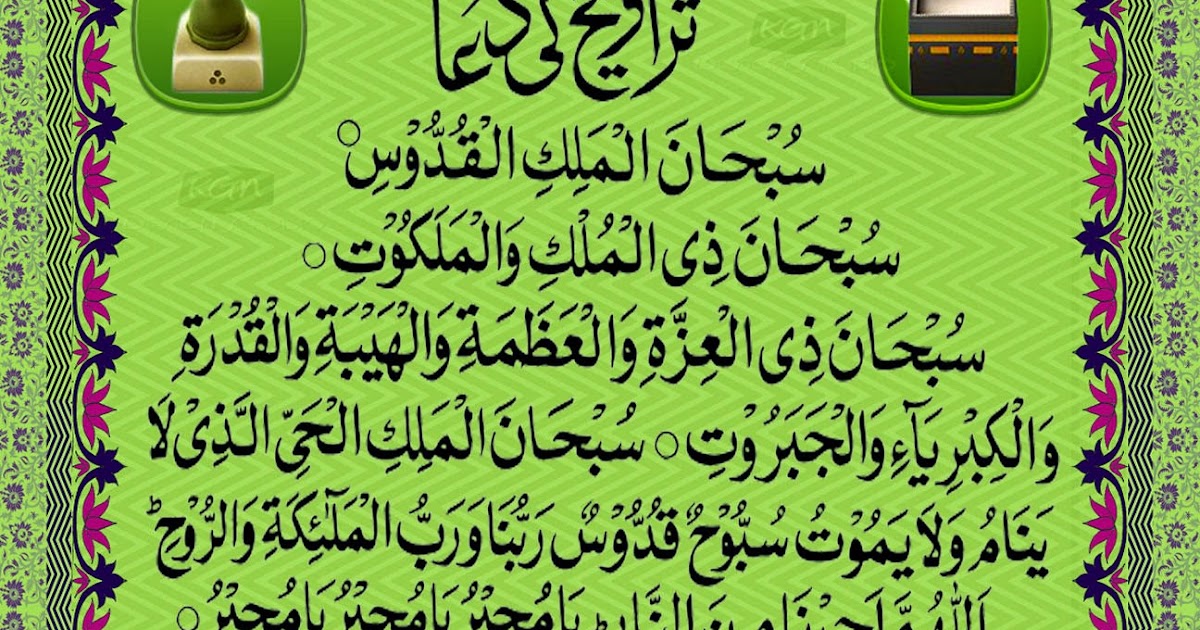 تراویح کی دعا
kan
سُبْحَانَ الْمَلِكِ الْقُدُّوْسِ ○
kan
سُبْحَانَ ذِی الْمُلْكِ وَالْمَلَكُوْتِ ○
سُبْحَانَ ذِی الْعِزَّةِ وَالْعَظَمَةِ وَالْهَيْبَةِ وَالْقُدْرَةِ
وَالْكِبْرِيَآءِ وَالْجَبَرُوْتِ ○ سُبْحَانَ الْمَلِكِ الْحَیِّ الَّذِیْ لَا
يَنَامُ وَلَا يَمُوْتُ سُبُّوْحٌ قُدُّوْسٌ رَبُّنَا وَرَبُّ الْمَلٰٓئِكَةِ وَالرُّوْحِ ؕ
اَللّٰهُمَّ اَجِرْنَا مِنَ النَّارِ ؕ يَا مُجِيْرُ يَا مُجِيْرُ يَا مُجِيْرُ ○